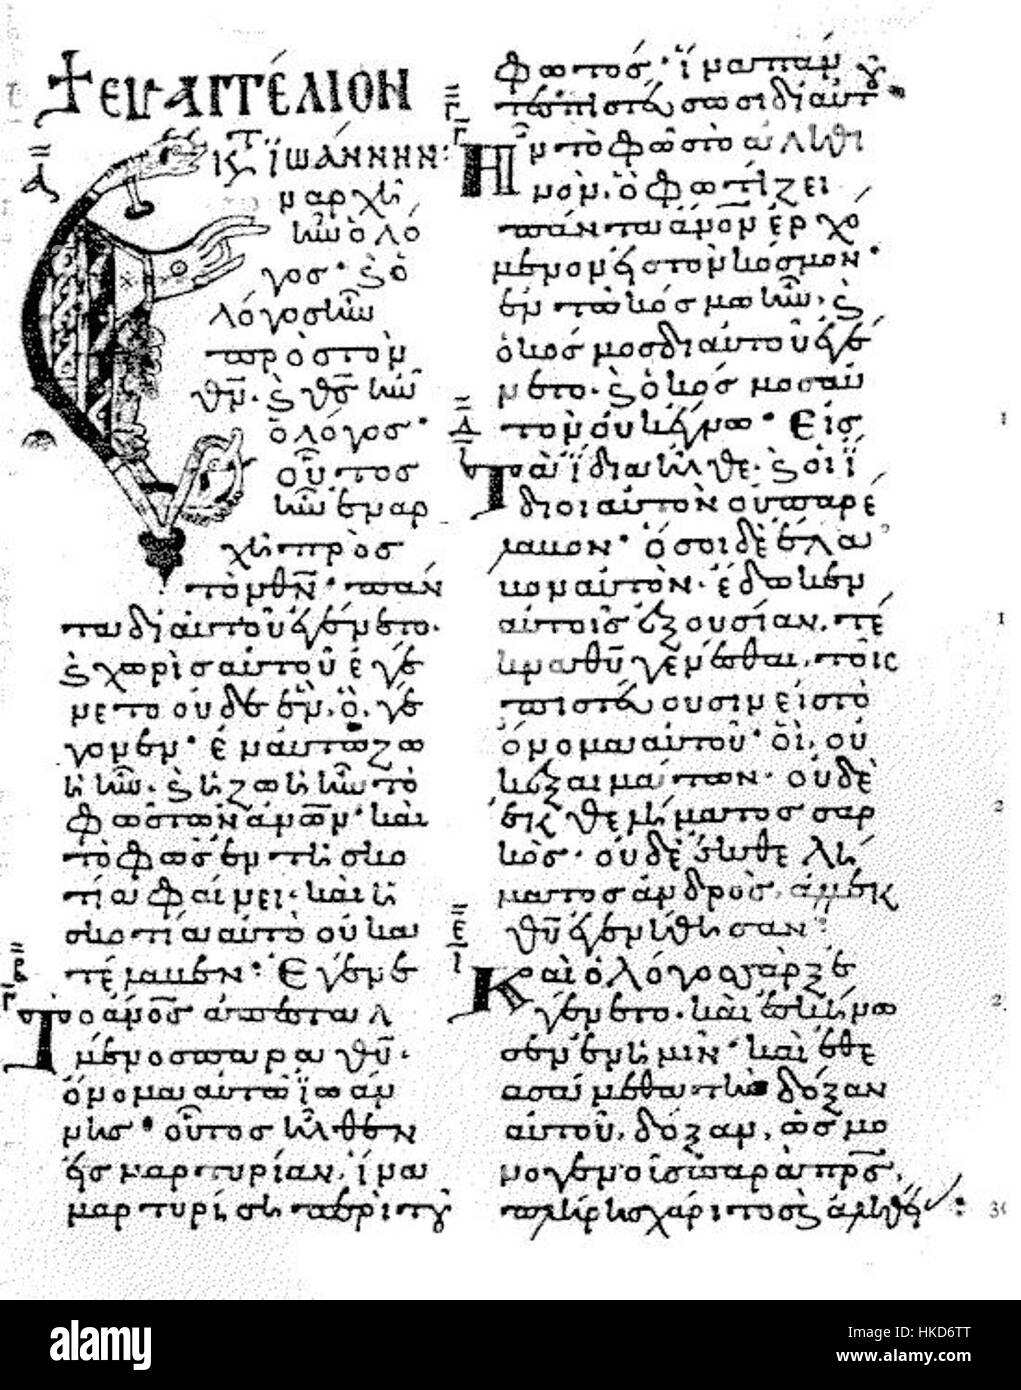 ✝ ΕΥΑΓΓΈΛΙΟΝ
Κ̅Τ̅ ἸΩΆΝΝΗΝ:
Α̅
Ἐν ἀρχῆ
ἦν ὁ λό
γος· ϗ ὁ
λόγος ἦν
πρὸς τὸν
θ̅ν̅· ϗ θ̅ς̅ ἦν
ὁ λόγος·
οὗτος
ἦν ἐν ἀρ
χῆ πρὸς
τὸν θ̅ν̅· πάν
τα δι αὐτοῦ ἐγένετο·
ϗ χωρὶς αὐτοῦ ἐγέ
νετο οὐδὲ ἕν. ὃ γέ
γονεν· ἐν αὐτῶ ζω
ὴ ἦν· ϗ ἡ ζωὴ ἦν τὸ
φῶς τῶν ἀν̅ων· καὶ
τὸ φῶς ἐν τῆ σκο
τία φαίνει· καὶ ἡ
σκοτία αὐτὸ οὐ κα
τέλαβεν· Ἐγένε
Β̅
το ἄν̅ο̅ς̅ ἀπεσταλ
μένος παρὰ θ̅υ̅·
ὄνομα αὐτῶ ϊωάν
νης· οὗτος ἦλθεν
εἰς μαρτυρίαν, ἵνα
μαρτυρίση περὶ τοῦ
φωτός· ἵνα πάν
τες πιστεύσωσι δι αὐτοῦ
Γ̅
Ἦν τὸ φῶς τὸ ἀληθι
νὸν, ὃ φωτίζει
πάντα ἄν̅ον ἐρχό
μενον εἰς τὸν κόσμον·
ἐν τῶ κόσμω ἦν· ϗ
ὁ κόσμος δι αὐτοῦ ἐγέ
νετο· ϗ ὁ κόσμος αὐ
τὸν οὐκ ἔγνω· Εἰς
Δ̅
τὰ ἴδια ἦλθε· ϗ οἱ ἴ
διοι αὐτὸν οὐ παρέ
λαβον· ὅσοι δὲ ἔλα
βον αὐτὸν· ἔδωκεν
αὐτοῖς ἐξουσίαν, τέ
κνα θ̅υ̅ γενέσθαι, τοῖς
πιστεύουσιν εἰς τὸ
ὄνομα αὐτοῦ· οἳ, οὐ
κ ἐξ αἱμάτων· οὐδὲ
ἐκ θελήματος σαρ
κὸς· οὐδὲ ἐκ θελή
ματος ἀνδρὸς, ἀλλ ἐκ
θ̅υ̅ ἐγεννήθησαν·
Ε̅
Καὶ ὁ λόγος σὰρξ ἐ
γένετο· καὶ ἐσκήνω
σεν ἐν ἡμῖν· καὶ ἐθε
ασάμεθα τὴν δόξαν
αὐτοῦ, δόξαν, ὡς μο
νογενοῦς παρὰ π̅ρ̅ς̅,
πλήρης χάριτος ϗ ἀληθεί
alamy
Image ID: HKD6TT
www.alamy.com